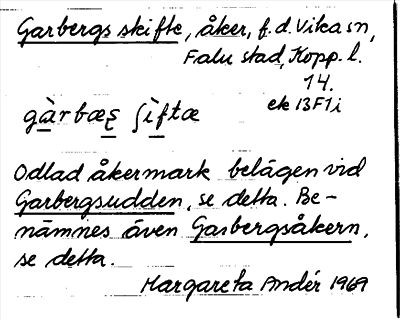 Garbergs skifte, åker, f.d. Vika sn,
Falu stad, Kopp. l.
14.
ek 13F1i
gàrbæʂ ʃìftæ
Odlad åkermark belägen vid
Garbergsudden, se detta. Be-
nämnes även Garbergsåkern,
se detta.
Margareta Andér 1969